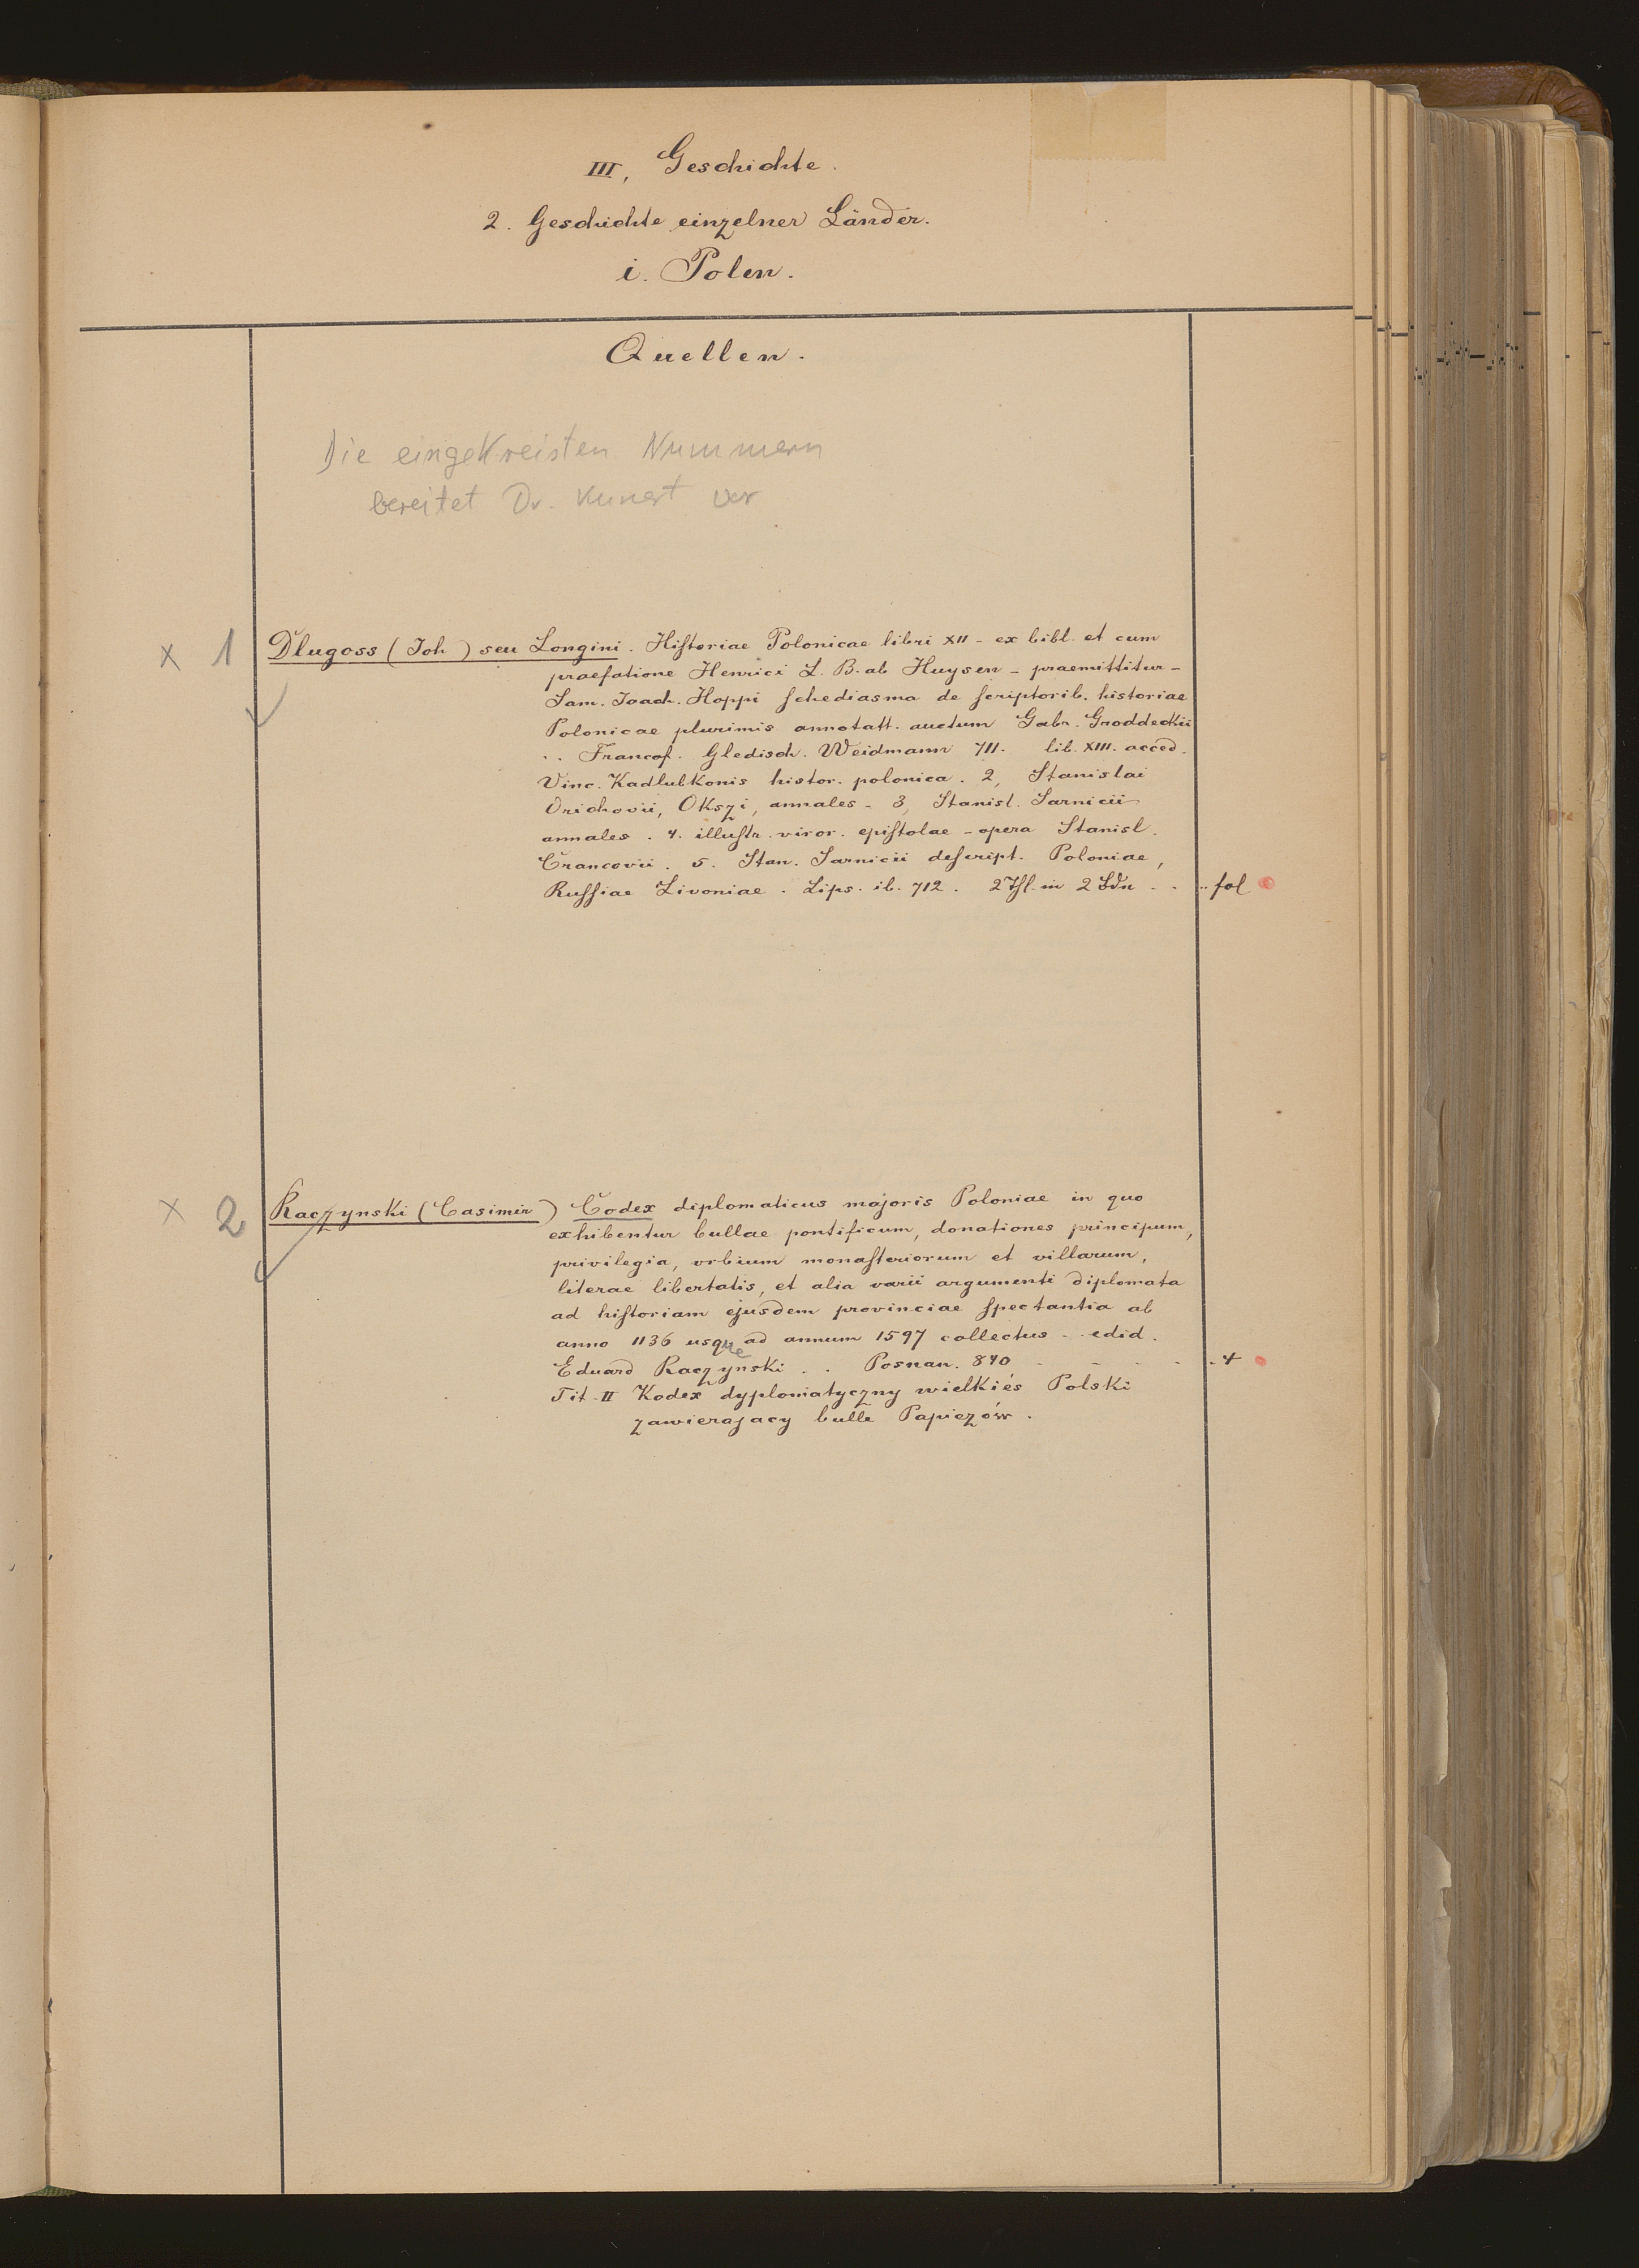 III, Geschichte.
2. Geschichte einzelner Länder.
i. Polen.
Quellen.
Die eingekreisten Nummern
bereitet Dr. Kunert vor
x 1 Dlugoss (Joh) seu Longini. Historiae Polonicae libri XII - ex bibl. et cum
praefatione Henrici L. B. ab Huyssen - praemittitur -
Sam. Joach. Hoppi schediasma de scriptorib. historiae
Polonicae plurimis annotatt. auctum Gabr. Groddeckii
.. Francof. Gledisch. Weidmann 711. lib. XIII. acced.
Vinc. Kadlubkonis histor. polonica. 2, Stanislai
Orichovii, Okszi, annales - 3, Stanisl. Sarnicii
annales. 4. illustr. viror. epistolae - opera Stanisl.
Crancovii. 5. Stan. Sarnicii descript. Poloniae,
Russiae Livoniae. Lips. ib. 712. 2 Thl. in 2 Bdn . . .. fol
x 2 Raczynski (Casimir) Codex diplomaticus majoris Poloniae in quo
exhibentur bullae pontificum, donationes principum,
privilegia, urbium monasteriorum et villarum,
literae libertatis, et alia varii argumenti diplomata
ad historiam ejusdem provinciae spectantia ab
anno 1136 usque ad annum 1597 collectus - edid.
Eduard Raczynski . . Posnan. 840 - - - . . 4
Tit. II Kodex dyplomatyczny wielkiés Polski
zawierajacy bulle Papiezów.